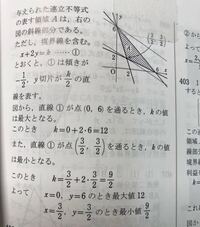 与えられた連立不等式
の表す領域Aは，右の
図の斜線部分である。
ただし，境界線を含む。
x+2y=k ……①
とおくと，①は傾きが
-1/2，y切片がk/2の直
線を表す。
図から，直線①が点(0, 6)を通るとき，kの値
は最大となる。
このとき k=0+2·6=12
また，直線①が点(3/2, 3/2)を通るとき，kの値は
最小となる。
このとき k=3/2+2·3/2=9/2
よって x=0，y=6のとき最大値12
x=3/2，y=3/2のとき最小値9/2
y
6
A
(3/2, 3/2)
O
x
403